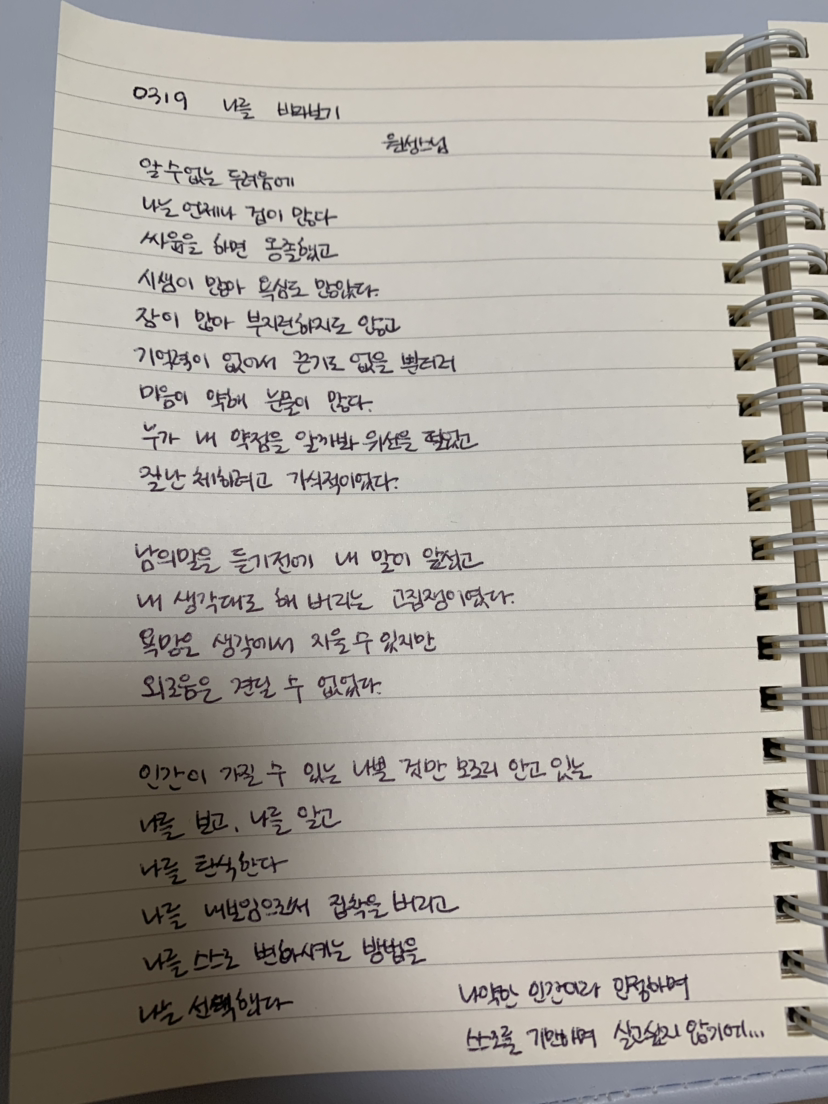 0319 나를 바라보기
원성스님
알 수 없는 두려움에
나는 언제나 겁이 많다
싸움을 하면 옹졸했고
시샘이 많아 욕심도 많았다.
잠이 많아 부지런하지도 않고
기억력이 없어서 끈기도 없을 뿐더러
마음이 약해 눈물이 많다.
누가 내 약점을 알까봐 위선을 떨었고
잘난 체하려고 가식적이었다.
남의말을 듣기전에 내 말이 앞섰고
내 생각대로 해 버리는 고집쟁이였다.
욕망을 생각에서 지울 수 있지만
외로움은 견딜 수 없었다.
인간이 가질 수 있는 나쁜 것만 모조리 안고 있는
나를 보고, 나를 알고
나를 탄식한다
나를 내보임으로써 집착을 버리고
나를 스스로 변화시키는 방법을
나는 선택했다
나약한 인간이라 인정하며
스스로를 기만하며 살고싶지 않기에...